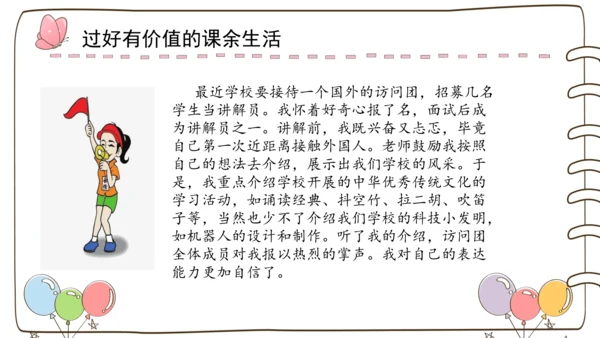 过好有价值的课余生活
最近学校要接待一个国外的访问团，招募几名
学生当讲解员。我怀着好奇心报了名，面试后成
为讲解员之一。讲解前，我既兴奋又忐忑，毕竟
自己第一次近距离接触外国人。老师鼓励我按照
自己的想法去介绍，展示出我们学校的风采。于
是，我重点介绍学校开展的中华优秀传统文化的
学习活动，如诵读经典、抖空竹、拉二胡、吹笛
子等，当然也少不了介绍我们学校的科技小发明，
如机器人的设计和制作。听了我的介绍，访问团
全体成员对我报以热烈的掌声。我对自己的表达
能力更加自信了。